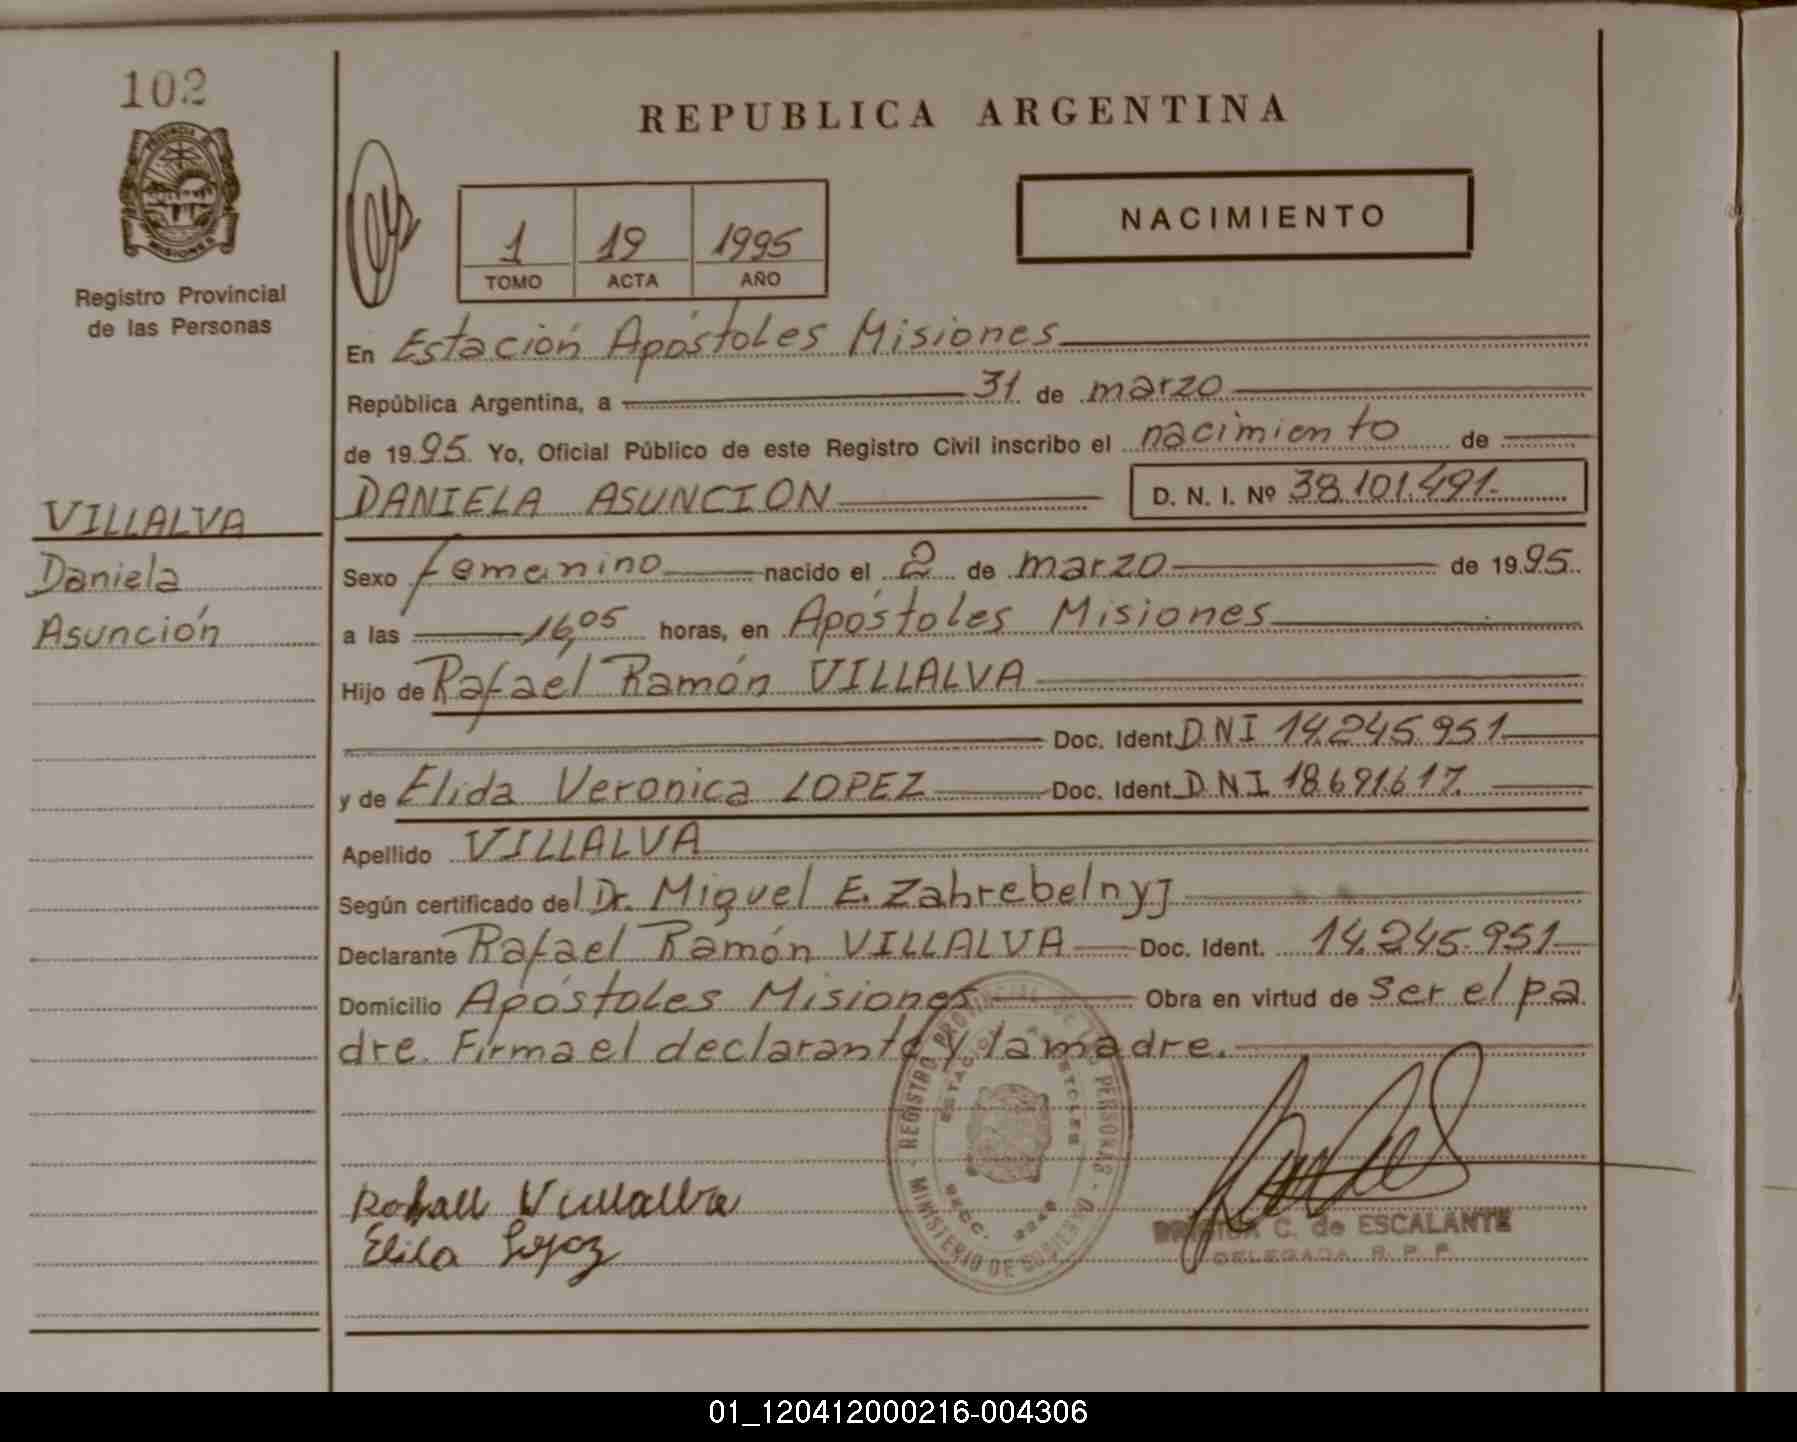 102
PROVINCIA
MISIONES
Registro Provincial
de las Personas
VILLALVA
Daniela
Asunción
REPUBLICA ARGENTINA
NACIMIENTO
1 19 1995
TOMO ACTA AÑO
En Estación Apóstoles Misiones
República Argentina, a 31 de marzo
de 1995. Yo, Oficial Público de este Registro Civil inscribo el nacimiento de
DANIELA ASUNCION D. N. I. Nº 38.101.491.
Sexo femenino nacido el 2 de marzo de 1995.
a las 16,05 horas, en Apóstoles Misiones
Hijo de Rafael Ramón VILLALVA
Doc. Ident. DNI 14.245.951
y de Elida Veronica LOPEZ Doc. Ident. DNI 18.691.617.
Apellido VILLALVA
Según certificado del Dr. Miguel E. Zahrebelnyj
Declarante Rafael Ramón VILLALVA Doc. Ident. 14.245.951
Domicilio Apóstoles Misiones Obra en virtud de ser el pa
dre. Firma el declarante y la madre.
REGISTRO PROVINCIAL DE LAS PERSONAS - MINISTERIO DE GOBIERNO
ESTACION APOSTOLES
SECC. 2248
Rafael Villalva
Elida Lopez
C. de ESCALANTE
DELEGADA R. P. P.
01_120412000216-004306